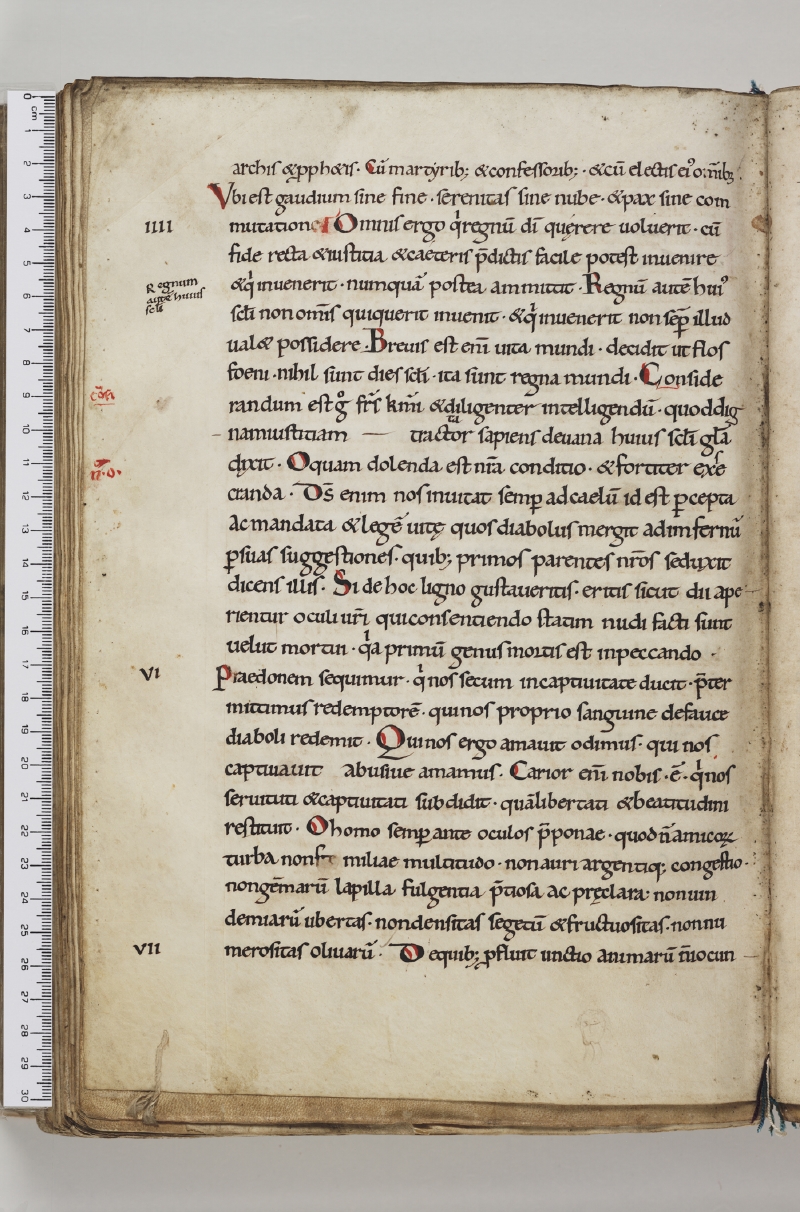 archis &pph&is· Cū martyrib; &confessorib;· &cū electis ei᾽ om̄ib;
Vbi est gaudium sine fine · serenitas sine nube · &pax sine com
IIII
mutatione Omnis ergo q̇ regnū dī querere uoluerit · cū
fide recta &iustitia &caeteris p̄dictis facile potest inuenire
&q̇ inuenerit · numquā postea ammittit · Regnū autē hui᾽
Regnum
autē huius
scli
scłi non omīs qui querit inuenit · &q̇ inuenerit non sēp illud
ual& possidere · Breuis est enī uita mundi · decidit ut flos
foeni · nihil sunt dies scłi · ita sunt regna mundi · Conside
randum est g̊ fr̄s km̄i &diligenter intelligendū · quod dig
nam iustitiam — tractor sapiens de uana huius scłi głā
dixit · O quam dolenda est nr̄a conditio · &fortiter exse
cranda · Ds̄ enim nos inuitat semp ad caelū id est pcepta
Ac mandata &legē uite quos diabolus mergit ad infernū
p suas suggestiones · quib; primos parentes nr̄os seduxit
dicens illis · Si de hoc ligno gustaueritis · eritis sicut dii ape
rientur oculi ur̄i qui consentiendo statim nudi facti sunt
uelut mortui · q̇a primū genus mortis est in peccando ·
VI
Praedonem sequimur · q̇ nos secum in captiuitate ducit · p̄ter
mittimus redemptorē · qui nos proprio sanguine de fauce
diaboli redemit · Qui nos ergo amauit odimus · qui nos
captiuauit abusiue amamus · Carior enī nobis · ē · q̇ nos
seruituti &captiuitati subdidit · quā libertati &beatitudini
restituit · O homo semp ante oculos p̄ponae · quod n̄ amicoꝝ
turba non miliae multitudo · non auri argentiq; congestio ·
non gēmarū lapilla fulgentia p̄tiosa ac preclara · non uin
demiarū ubertas · non densitas segetū &fructuositas · non nu
VII
merositas oliuarū · De quib; pfluit unctio animarū n̄ iocun